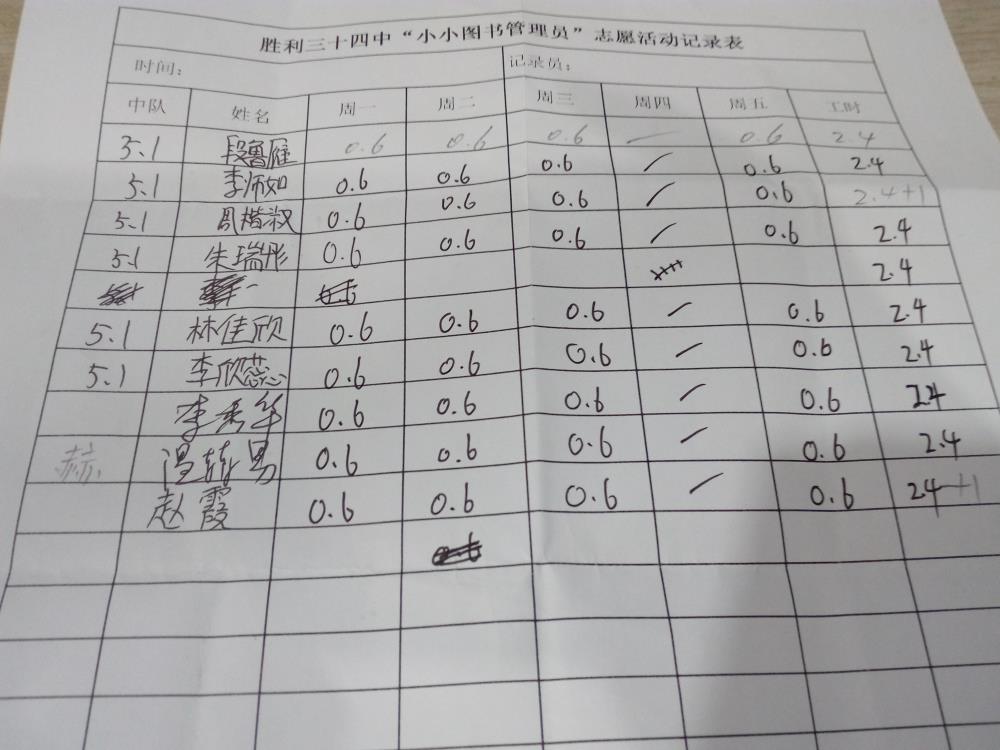 胜利三十四中“小小图书管理员”志愿活动记录表
时间： 记录员：
中队 姓名 周一 周二 周三 周四 周五 工时
5.1 段鲁雁 0.6 0.6 0.6 — 0.6 2.4
5.1 李师如 0.6 0.6 0.6 / 0.6 2.4
5.1 周楷淑 0.6 0.6 0.6 / 0.6 2.4+1
5.1 朱瑞彤 0.6 0.6 0.6 / 0.6 2.4
2.4
5.1 林佳欣 0.6 0.6 0.6 / 0.6 2.4
5.1 李欣蕊 0.6 0.6 0.6 / 0.6 2.4
李秀华 0.6 0.6 0.6 / 0.6 2.4
赫 温 男 0.6 0.6 0.6 / 0.6 2.4
赵霞 0.6 0.6 0.6 / 0.6 24+1